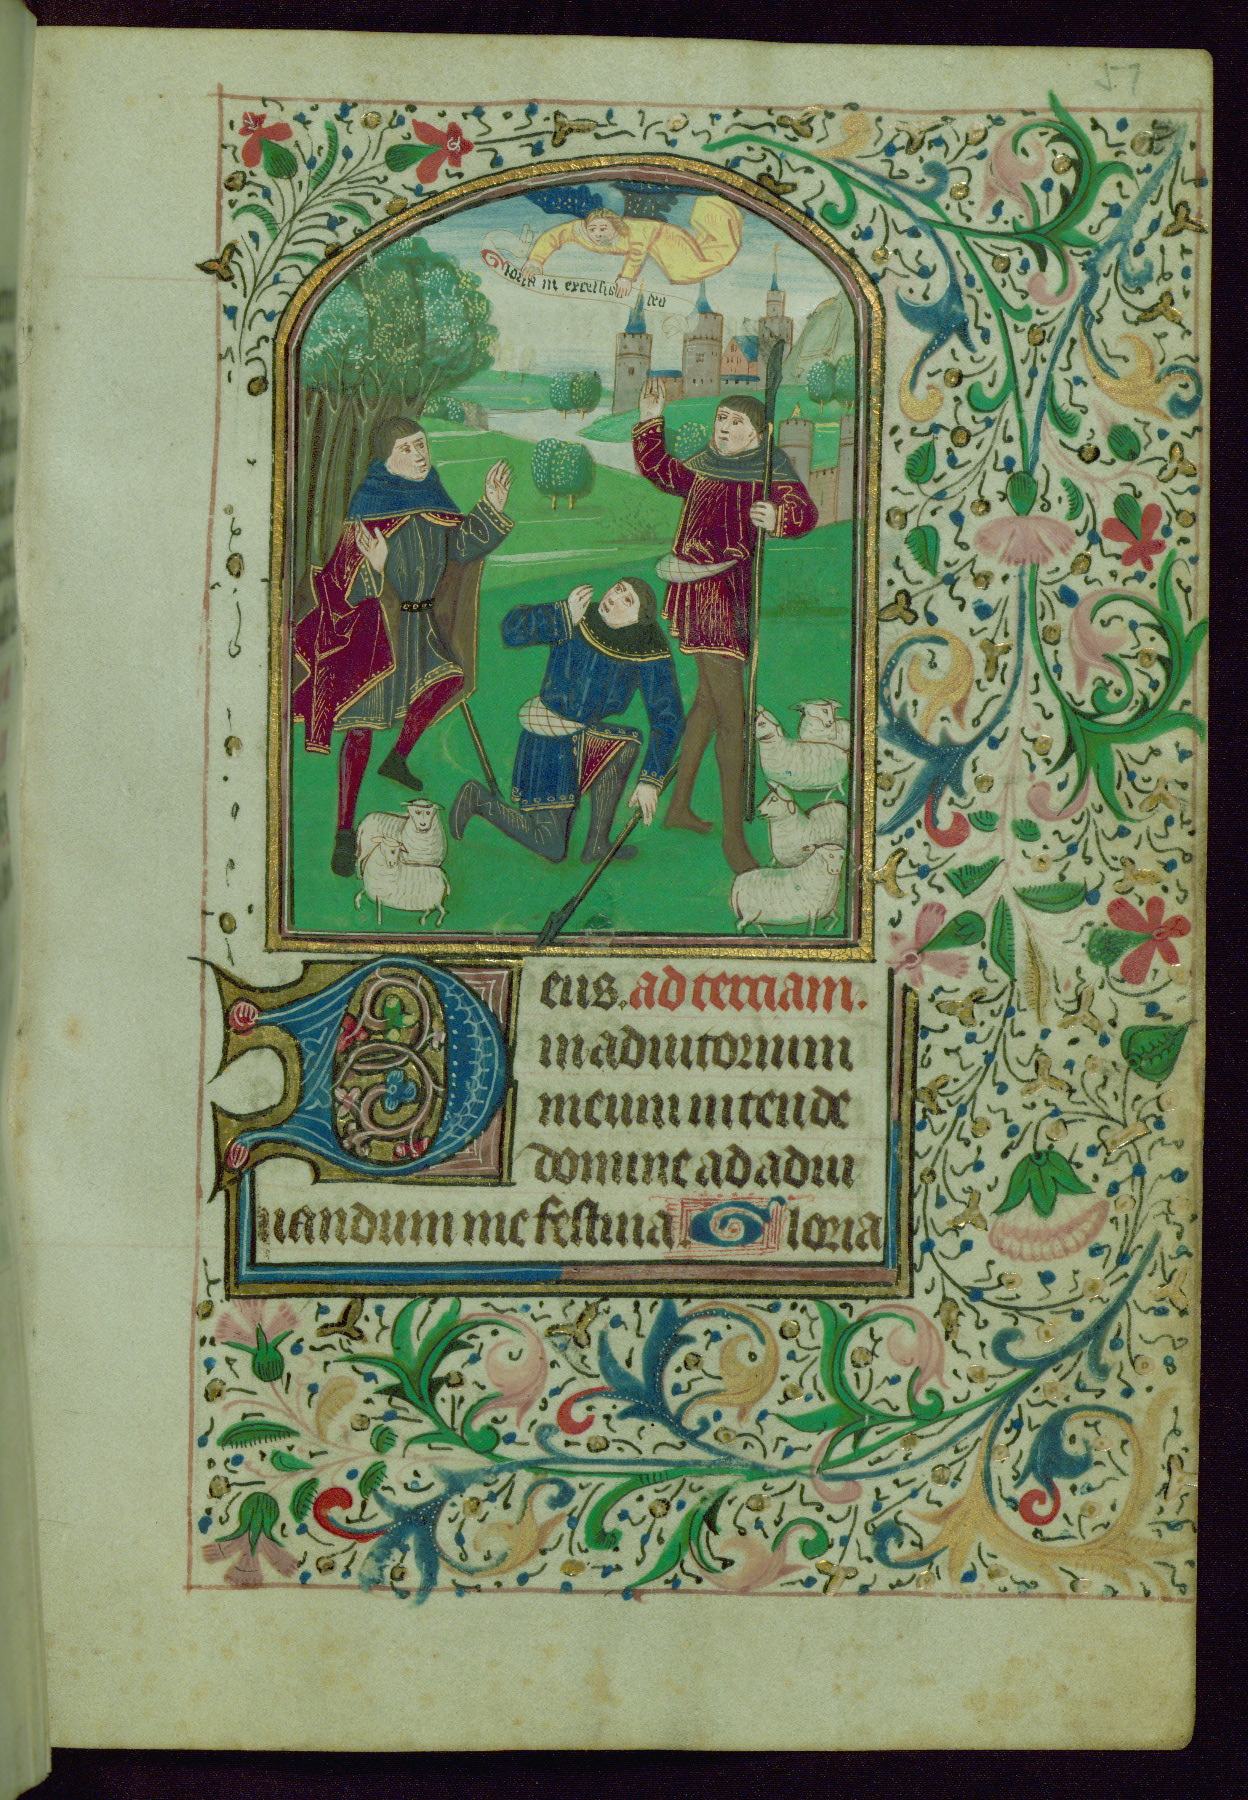 57
Gloria in excelsis deo
Deus. ad terciam.
in adiutorium
meum intende
domine ad adiu
uandum me festina. Gloria